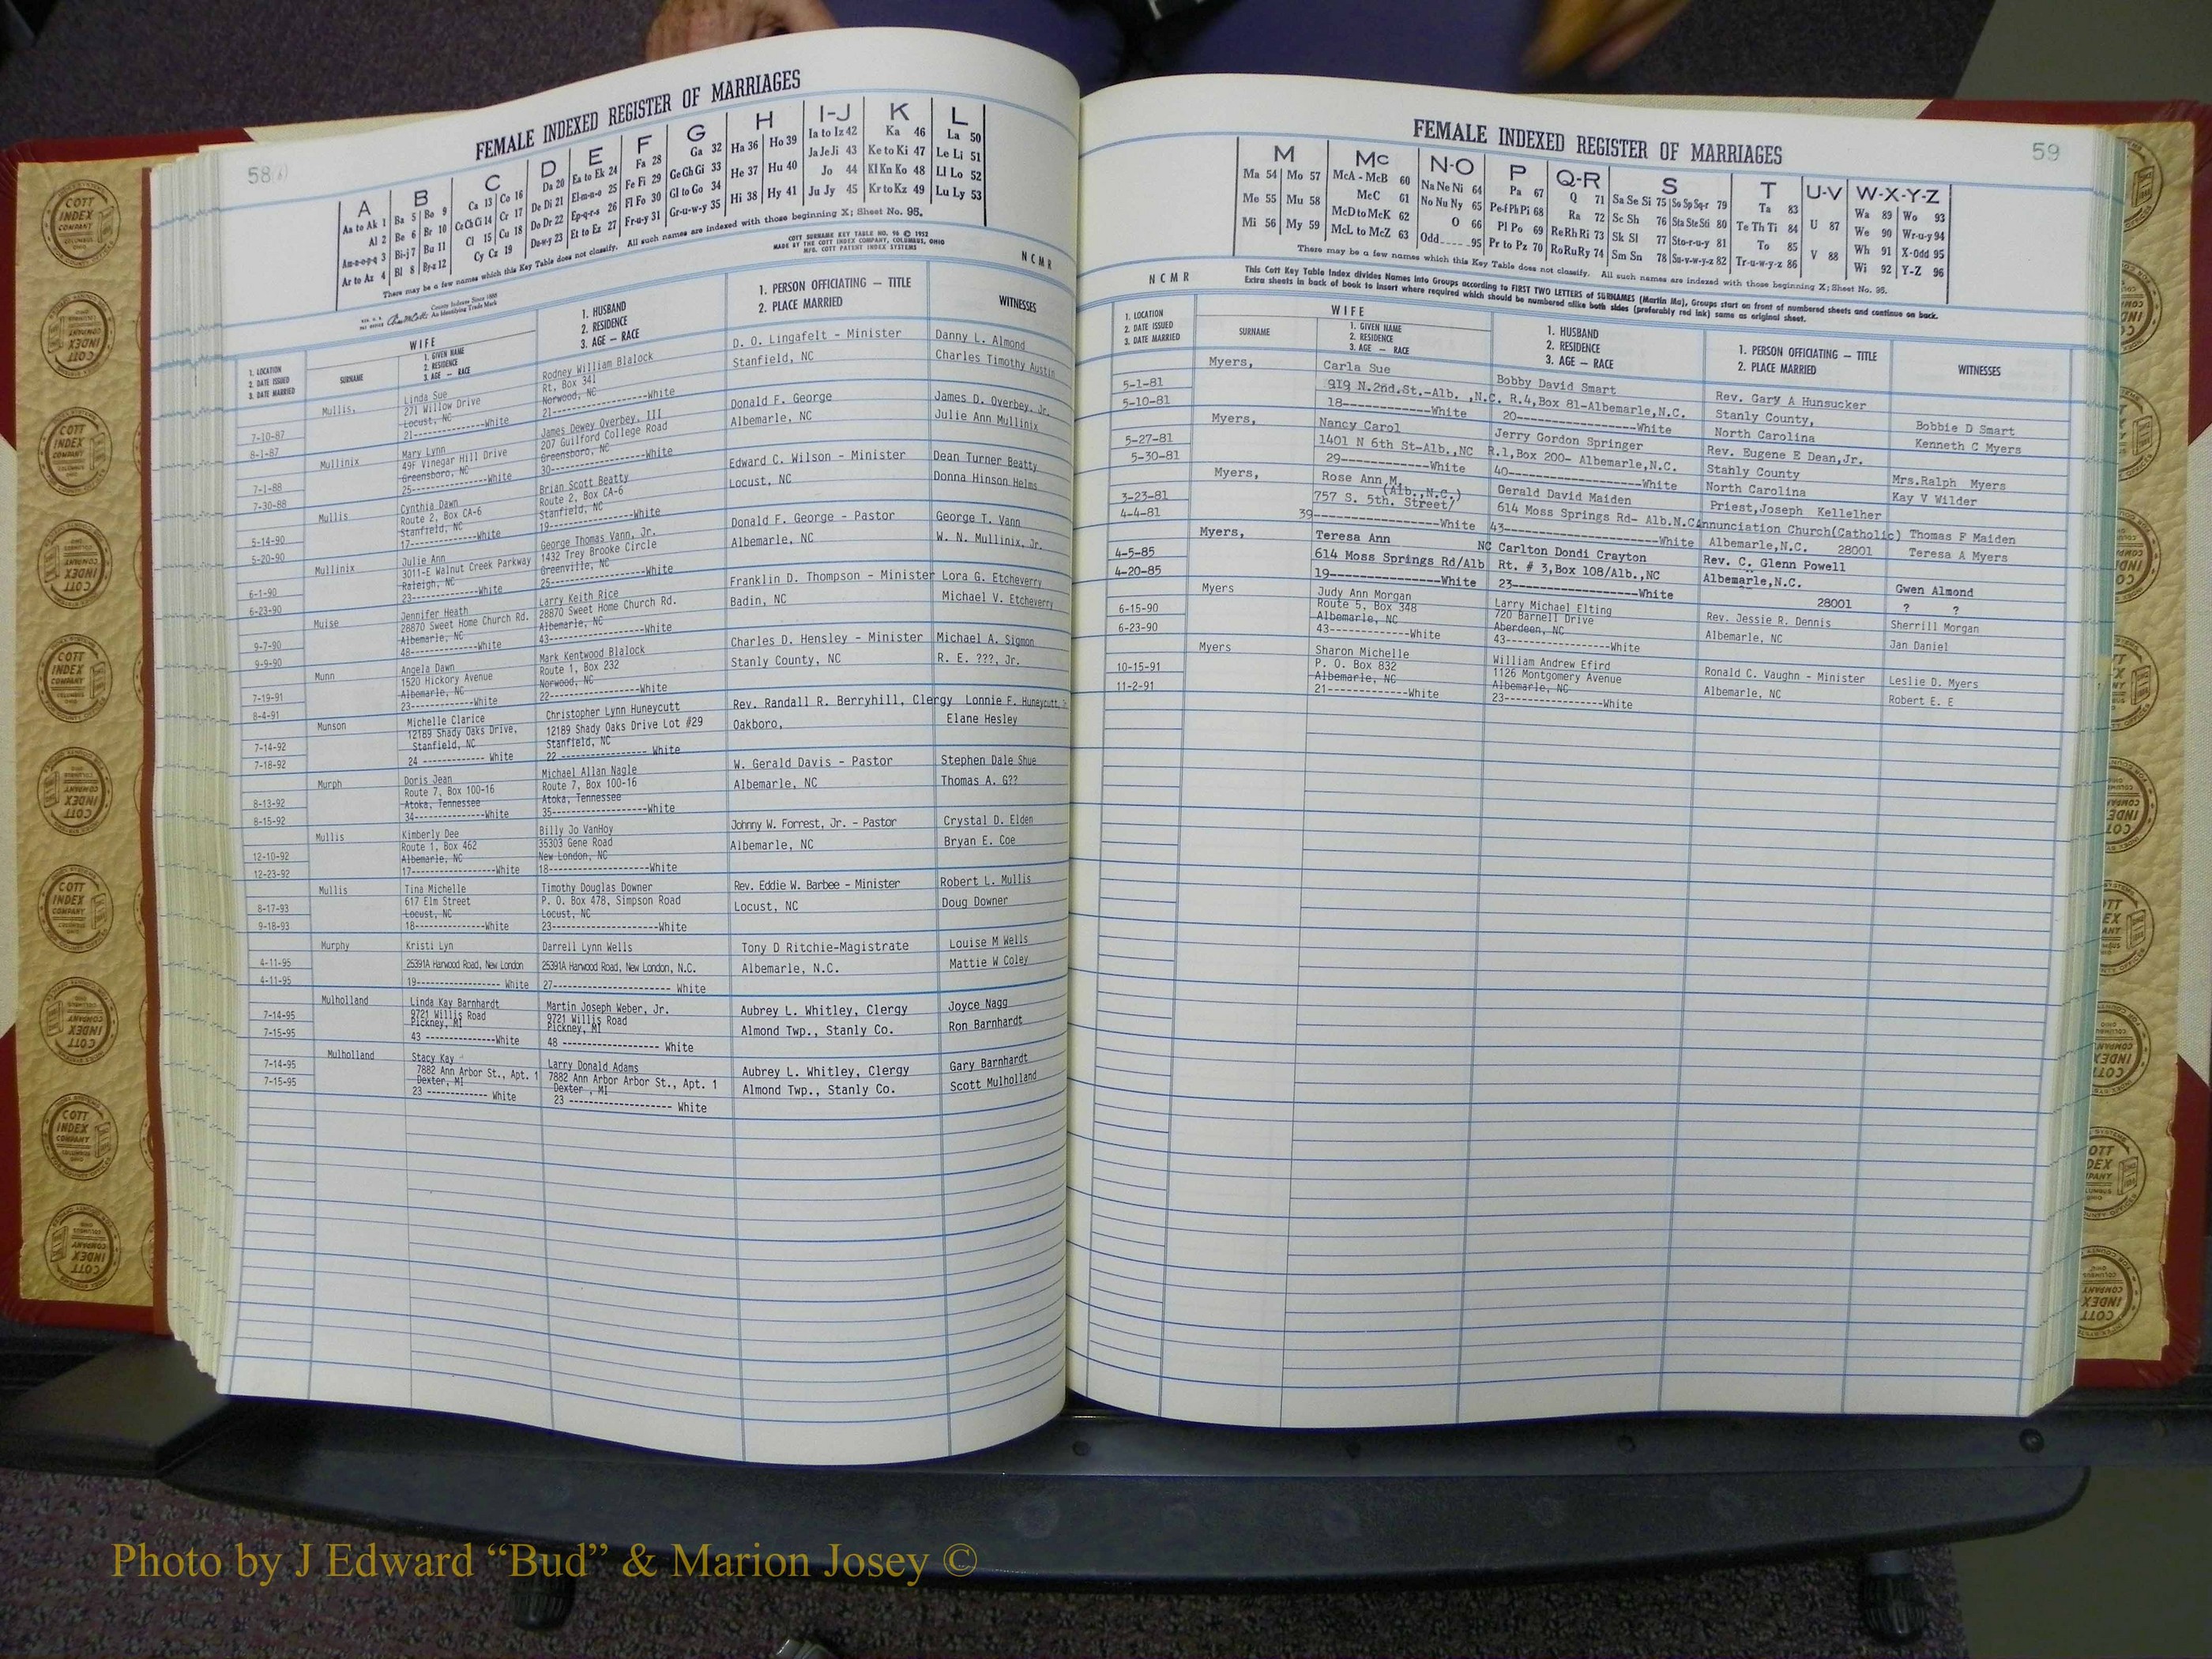 FEMALE INDEXED REGISTER OF MARRIAGES
58
A B C D E F G H I-J K L
Aa to Ak 1 Ba 5 Bo 9 Ca 13 Co 16 Da 20 Ea to Ek 24 Fa 28 Ga 32 Ha 36 Ho 39 Ia to Iz 42 Ka 46 La 50
Al 2 Be 6 Br 10 Ce Ch Ci 14 Cr 17 De Di 21 El-m-n-o 25 Fe Fi 29 Ge Gh Gi 33 He 37 Hu 40 Ja Je Ji 43 Ke to Ki 47 Le Li 51
Am-n-o-p-q 3 Bi-j 7 Bu 11 Cl 15 Cu 18 Do Dr 22 Ep-q-r-s 26 Fl Fo 30 Gl to Go 34 Hi 38 Hy 41 Jo 44 Kl Kn Ko 48 Ll Lo 52
Ar to Az 4 Bl 8 By-z 12 Cy Cz 19 Du-w-y 23 Et to Ez 27 Fr-u-y 31 Gr-u-w-y 35 Ju Jy 45 Kr to Kz 49 Lu Ly 53
There may be a few names which this Key Table does not classify. All such names are indexed with those beginning X; Sheet No. 95.
COTT SURNAME KEY TABLE NO. 96 © 1952
MADE BY THE COTT INDEX COMPANY, COLUMBUS, OHIO
MFG. COTT PATENT INDEX SYSTEMS
County Indexes Since 1888
An Identifying Trade Mark
N C M R
1. LOCATION
2. DATE ISSUED
3. DATE MARRIED
WIFE
SURNAME
1. GIVEN NAME
2. RESIDENCE
3. AGE — RACE
1. HUSBAND
2. RESIDENCE
3. AGE — RACE
1. PERSON OFFICIATING — TITLE
2. PLACE MARRIED
WITNESSES
Mullis, Linda Sue Rodney William Blalock D. O. Lingafelt - Minister Danny L. Almond
271 Willow Drive Rt, Box 341 Stanfield, NC Charles Timothy Austin
7-10-87 Locust, NC Norwood, NC
8-1-87 21-------------White 21-------------------White
Mullinix Mary Lynn James Dewey Overbey, III Donald F. George James D. Overbey, Jr.
49F Vinegar Hill Drive 207 Guilford College Road Albemarle, NC Julie Ann Mullinix
7-1-88 Greensboro, NC Greensboro, NC
7-30-88 25-------------White 30-------------------White
Mullis Cynthia Dawn Brian Scott Beatty Edward C. Wilson - Minister Dean Turner Beatty
Route 2, Box CA-6 Route 2, Box CA-6 Locust, NC Donna Hinson Helms
5-14-90 Stanfield, NC Stanfield, NC
5-20-90 17-------------White 19-------------------White
Mullinix Julie Ann George Thomas Vann, Jr. Donald F. George - Pastor George T. Vann
3011-E Walnut Creek Parkway 1432 Trey Brooke Circle Albemarle, NC W. N. Mullinix, Jr.
6-1-90 Raleigh, NC Greenville, NC
6-23-90 23-------------White 25-------------------White
Muise Jennifer Heath Larry Keith Rice Franklin D. Thompson - Minister Lora G. Etcheverry
28870 Sweet Home Church Rd. 28870 Sweet Home Church Rd. Badin, NC Michael V. Etcheverry
9-7-90 Albemarle, NC Albemarle, NC
9-9-90 48-------------White 43-------------------White
Munn Angela Dawn Mark Kentwood Blalock Charles D. Hensley - Minister Michael A. Sigmon
1520 Hickory Avenue Route 1, Box 232 Stanly County, NC R. E. ???, Jr.
7-19-91 Albemarle, NC Norwood, NC
8-4-91 23-------------White 22-------------------White
Munson Michelle Clarice Christopher Lynn Huneycutt Rev. Randall R. Berryhill, Clergy Lonnie F. Huneycutt,
12189 Shady Oaks Drive, 12189 Shady Oaks Drive Lot #29 Oakboro, Elane Hesley
7-14-92 Stanfield, NC Stanfield, NC
7-18-92 24 ------------ White 22 ------------------ White
Murph Doris Jean Michael Allan Nagle W. Gerald Davis - Pastor Stephen Dale Shue
Route 7, Box 100-16 Route 7, Box 100-16 Albemarle, NC Thomas A. G??
8-13-92 Atoka, Tennessee Atoka, Tennessee
8-15-92 34-------------White 35-------------------White
Mullis Kimberly Dee Billy Jo VanHoy Johnny W. Forrest, Jr. - Pastor Crystal D. Elden
Route 1, Box 462 35303 Gene Road Albemarle, NC Bryan E. Coe
12-10-92 Albemarle, NC New London, NC
12-23-92 17-------------White 18-------------------White
Mullis Tina Michelle Timothy Douglas Downer Rev. Eddie W. Barbee - Minister Robert L. Mullis
8-17-93 617 Elm Street P. O. Box 478, Simpson Road Locust, NC Doug Downer
Locust, NC Locust, NC
9-18-93 18-------------White 23-------------------White
Murphy Kristi Lyn Darrell Lynn Wells Tony D Ritchie-Magistrate Louise M Wells
4-11-95 25391A Harwood Road, New London 25391A Harwood Road, New London, N.C. Albemarle, N.C. Mattie W Coley
4-11-95 19-------------- White 27------------------------ White
Mulholland Linda Kay Barnhardt Martin Joseph Weber, Jr. Aubrey L. Whitley, Clergy Joyce Nagg
7-14-95 9721 Willis Road 9721 Willis Road Almond Twp., Stanly Co. Ron Barnhardt
Pickney, MI Pickney, MI
7-15-95 43 --------------White 48 ------------------- White
Mulholland Stacy Kay Larry Donald Adams Aubrey L. Whitley, Clergy Gary Barnhardt
7-14-95 7882 Ann Arbor St., Apt. 1 7882 Ann Arbor Arbor St., Apt. 1 Almond Twp., Stanly Co. Scott Mulholland
7-15-95 Dexter, MI Dexter , MI
23 ------------ White 23 -------------------- White
FEMALE INDEXED REGISTER OF MARRIAGES
59
M Mc N-O P Q-R S T U-V W-X-Y-Z
Ma 54 Mo 57 McA - McB 60 Na Ne Ni 64 Pa 67 Q 71 Sa Se Si 75 So Sp Sq-r 79 Ta 83 U 87 Wa 89 Wo 93
Me 55 Mu 58 McC 61 No Nu Ny 65 Pe-f Ph Pi 68 Ra 72 Sc Sh 76 Sta Ste Sti 80 Te Th Ti 84 V 88 We 90 Wr-u-y 94
Mi 56 My 59 McD to McK 62 O 66 Pl Po 69 Re Rh Ri 73 Sk Sl 77 Sto-r-u-y 81 To 85 Wh 91 X-Odd 95
McL to McZ 63 Odd 95 Pr to Pz 70 Ro Ru Ry 74 Sm Sn 78 Su-v-w-y-z 82 Tr-u-w-y-z 86 Wi 92 Y-Z 96
There may be a few names which this Key Table does not classify. All such names are indexed with those beginning X; Sheet No. 95.
This Cott Key Table Index divides Names into Groups according to FIRST TWO LETTERS of SURNAMES (Martin Ma), Groups start on front of numbered sheets and continue on back.
Extra sheets in back of book to insert where required which should be numbered alike both sides (preferably red ink) same as original sheet.
N C M R
1. LOCATION
2. DATE ISSUED
3. DATE MARRIED
WIFE
SURNAME
1. GIVEN NAME
2. RESIDENCE
3. AGE — RACE
1. HUSBAND
2. RESIDENCE
3. AGE — RACE
1. PERSON OFFICIATING — TITLE
2. PLACE MARRIED
WITNESSES
Myers, Carla Sue Bobby David Smart Rev. Gary A Hunsucker
5-1-81 919 N.2nd.St.-Alb. ,N.C. R.4,Box 81-Albemarle,N.C. Stanly County, Bobbie D Smart
5-10-81 18------------White 20----------------White North Carolina Kenneth C Myers
Myers, Nancy Carol Jerry Gordon Springer Rev. Eugene E Dean,Jr.
5-27-81 1401 N 6th St-Alb.,NC R.1,Box 200- Albemarle,N.C. Stahly County Mrs.Ralph Myers
5-30-81 29------------White 40-----------------White North Carolina Kay V Wilder
Myers, Rose Ann M. Gerald David Maiden Priest,Joseph Kellelher
3-23-81 757 S. 5th. Street/ (Alb.,N.C.) 614 Moss Springs Rd- Alb.N.C. Annunciation Church(Catholic) Thomas F Maiden
4-4-81 39-----------------White 43------------------White Albemarle,N.C. 28001 Teresa A Myers
Myers, Teresa Ann Carlton Dondi Crayton Rev. C. Glenn Powell
4-5-85 614 Moss Springs Rd/Alb NC Rt. # 3,Box 108/Alb.,NC Albemarle,N.C. Gwen Almond
4-20-85 19---------------White 23------------------White 28001 ? ?
Myers Judy Ann Morgan Larry Michael Elting Rev. Jessie R. Dennis Sherrill Morgan
6-15-90 Route 5, Box 348 720 Barnell Drive Albemarle, NC Jan Daniel
6-23-90 Albemarle, NC Aberdeen, NC
43------------White 43-----------------White
Myers Sharon Michelle William Andrew Efird Ronald C. Vaughn - Minister Leslie D. Myers
10-15-91 P. O. Box 832 1126 Montgomery Avenue Albemarle, NC Robert E. E
11-2-91 Albemarle, NC Albemarle, NC
21------------White 23-----------------White
COTT INDEX COMPANY
Photo by J Edward “Bud” & Marion Josey ©